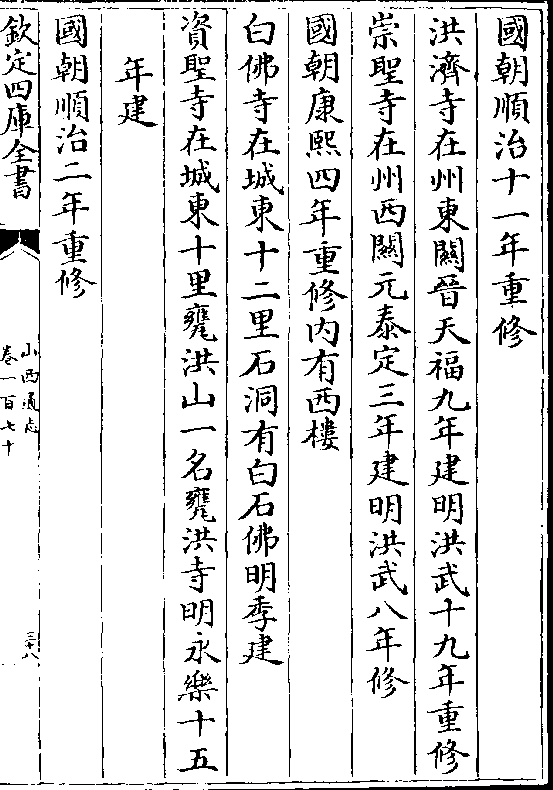 國朝順治十一年重修
洪濟寺在州東關晉天福九年建明洪武十九年重修
崇聖寺在州西關元泰定三年建明洪武八年修
國朝康熙四年重修内有西樓
白佛寺在城東十二里石洞有白石佛明季建
資聖寺在城東十里甕洪山一名甕洪寺明永樂十五
年建
國朝順治二年重修
欽定四庫全書
山西通志
卷一百七十
三十八